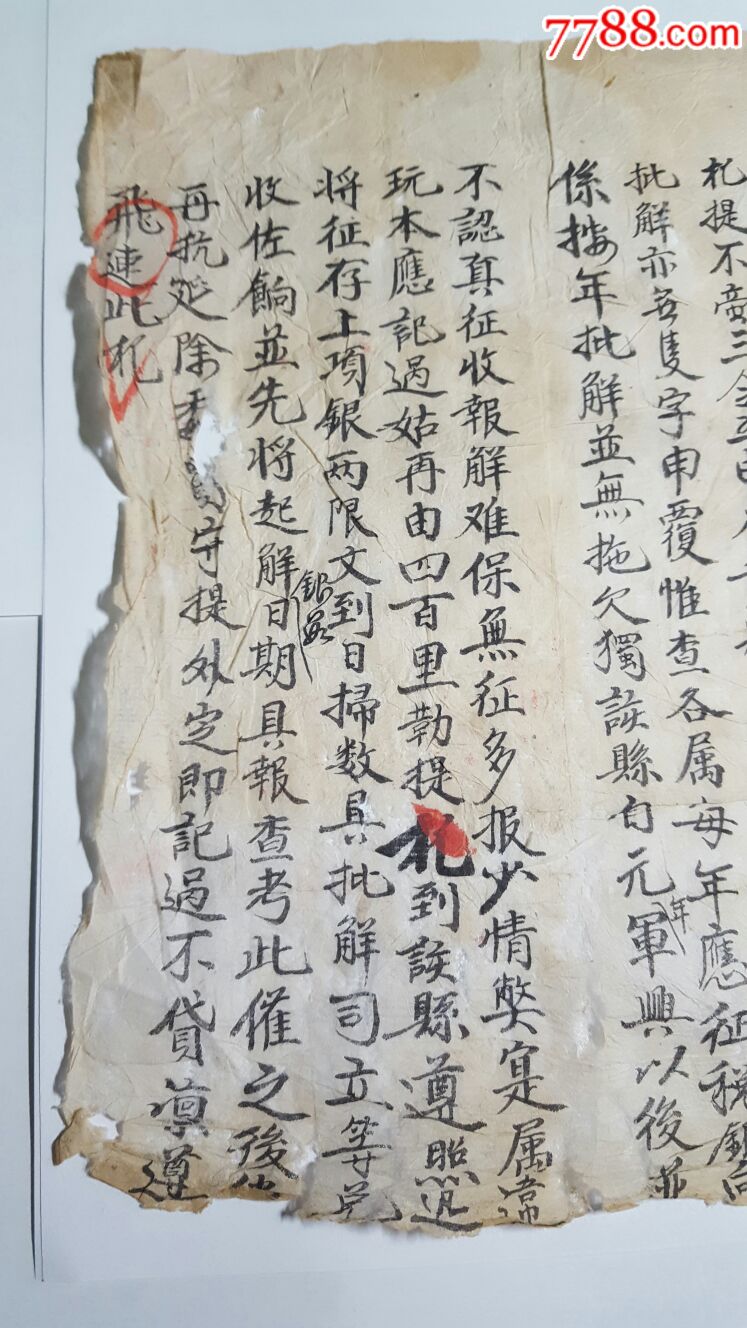 7788.com
札提不啻三令五申
批解亦無隻字申覆惟查各属每年應征税銀向
係按年批解並無拖欠獨該縣自元年軍興以後並
不認真征收報解难保無征多报少情弊寔属
玩本應記過姑再由四百里勒提札到該縣遵照迅
将征存上項銀两限文到日掃数具批解司立等
收佐餉並先将起解銀数日期具報查考此催之後
再抗延除委員守提外定即記過不貸凛遵
飛速此札